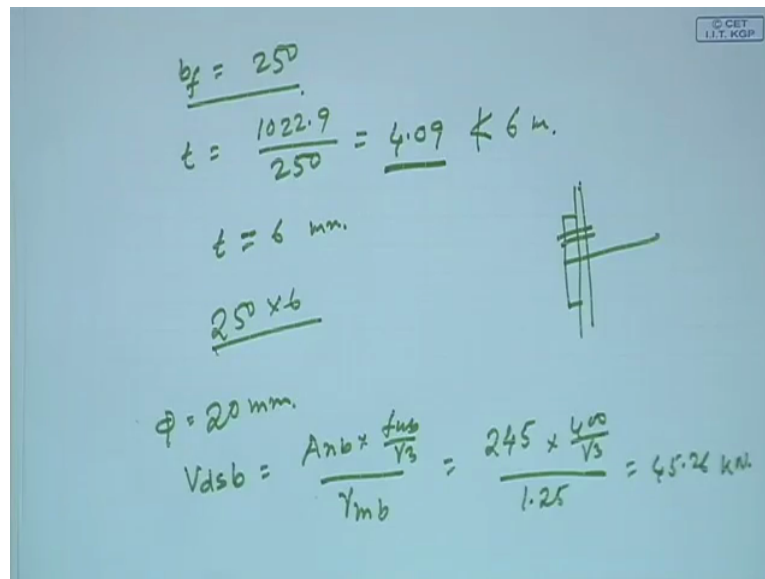 © CET
I.I.T. KGP
bf = 250
t = 1022.9 / 250 = 4.09 ≮ 6 m.
t = 6 mm.
250 x 6
Φ = 20 mm.
Vdsb = Anb x fub/√3 / γmb = 245 x 400/√3 / 1.25 = 45.26 kN.